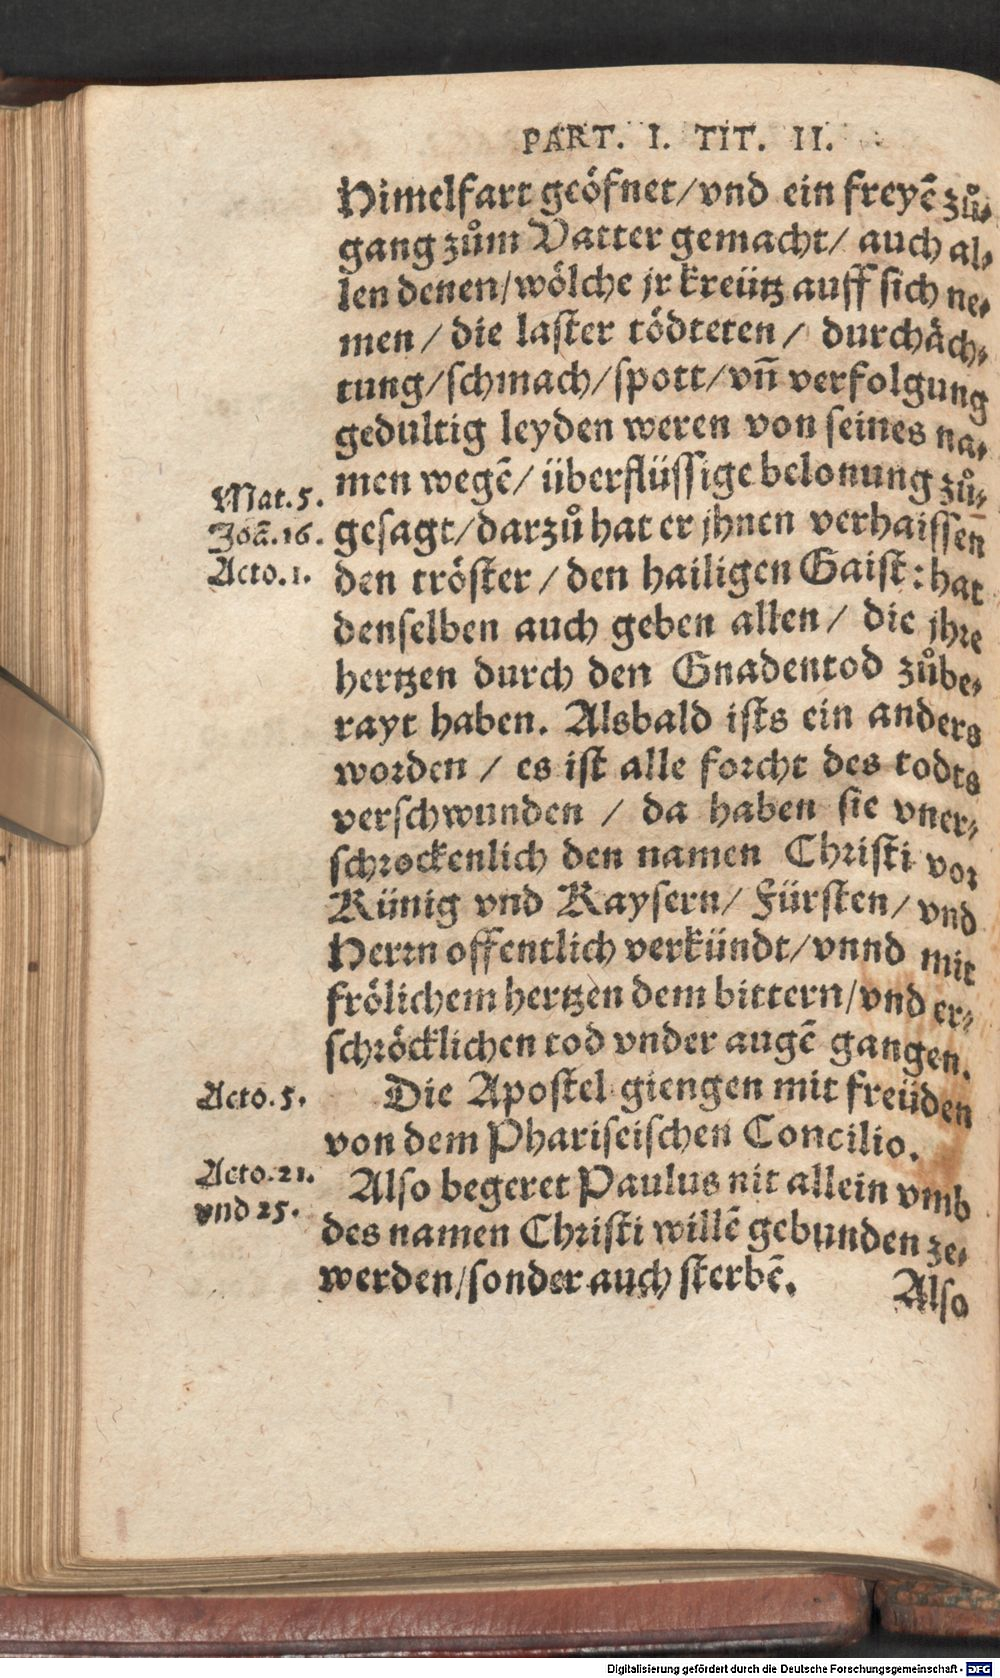 PART. I. TIT. II.
Himelfart geöfnet/vnd ein freyẽ zů-
gang zům Vatter gemacht/ auch al-
len denen/wölche jr kreütz auff sich ne-
men / die laster tödteten / durchäch-
tung/schmach/spott/vñ verfolgung
gedultig leyden weren von seines na-
men wegẽ/ überflüssige belonung zů-
gesagt/darzů hat er jhnen verhaissen
den tröster / den hailigen Gaist: hat
denselben auch geben allen / die jhre
hertzen durch den Gnadentod zůbe-
rayt haben. Alsbald ists ein anders
worden / es ist alle forcht des todts
verschwunden / da haben sie vner-
schrockenlich den namen Christi vor
Künig vnd Kaysern/ Fürsten/ vnd
Herrn offentlich verkündt/vnnd mit
frölichem hertzen dem bittern/vnd er-
schröcklichen tod vnder augẽ gangen.
Die Apostel giengen mit freüden
von dem Phariseischen Concilio.
Also begeret Paulus nit allein vmb
des namen Christi willẽ gebunden ze-
werden/sonder auch sterbẽ.
Also
Mat.5.
Joã.16.
Acto.1.
Acto.5.
Acto.21.
vnd 25.
Digitalisierung gefördert durch die Deutsche Forschungsgemeinschaft - DFG